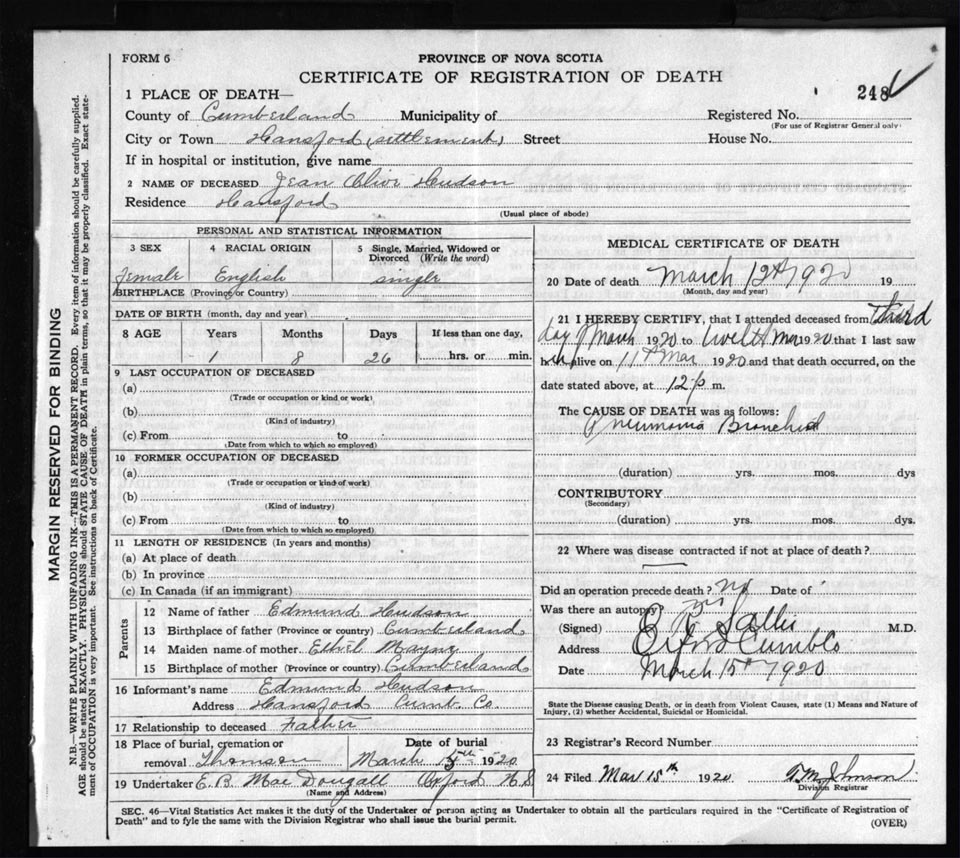 FORM 6
PROVINCE OF NOVA SCOTIA
CERTIFICATE OF REGISTRATION OF DEATH
248
1 PLACE OF DEATH—
County of Cumberland Municipality of Registered No.
(For use of Registrar General only)
City or Town Hansford (settlement) Street House No.
If in hospital or institution, give name
2 NAME OF DECEASED Jean Olive Hudson
Residence Hansford
(Usual place of abode)
PERSONAL AND STATISTICAL INFORMATION
3 SEX 4 RACIAL ORIGIN 5 Single, Married, Widowed or Divorced (Write the word)
female English single
BIRTHPLACE (Province or Country)
DATE OF BIRTH (month, day and year)
8 AGE Years Months Days If less than one day,
1 8 26 hrs. or min.
9 LAST OCCUPATION OF DECEASED
(a)
(Trade or occupation or kind or work)
(b)
(Kind of industry)
(c) From to
(Date from which to which so employed)
10 FORMER OCCUPATION OF DECEASED
(a)
(Trade or occupation or kind of work)
(b)
(Kind of industry)
(c) From to
(Date from which to which so employed)
11 LENGTH OF RESIDENCE (In years and months)
(a) At place of death
(b) In province
(c) In Canada (if an immigrant)
Parents
12 Name of father Edmund Hudson
13 Birthplace of father (Province or country) Cumberland
14 Maiden name of mother Ethel
15 Birthplace of mother (Province or country) Cumberland
16 Informant's name Edmund Hudson
Address Hansford Cumb. Co
17 Relationship to deceased Father
18 Place of burial, cremation or removal Thomson Date of burial March 1920
19 Undertaker E. B. MacDougall Oxford N S
(Name and Address)
MEDICAL CERTIFICATE OF DEATH
20 Date of death March 12th 1920 19
(Month, day and year)
21 I HEREBY CERTIFY, that I attended deceased from Third
day of March 1920 to twelth Mar 1920 that I last saw
h er alive on 11th Mar 1920 and that death occurred, on the
date stated above, at 12 p m.
The CAUSE OF DEATH was as follows:
Pneumonia Bronchial
(duration) yrs. mos. dys
CONTRIBUTORY
(Secondary)
(duration) yrs. mos. dys.
22 Where was disease contracted if not at place of death?
Did an operation precede death? no Date of
Was there an autopsy no
(Signed) M.D.
Address Oxford Cumb Co
Date March 15th 1920
State the Disease causing Death, or in death from Violent Causes, state (1) Means and Nature of
Injury, (2) whether Accidental, Suicidal or Homicidal.
23 Registrar's Record Number
24 Filed Mar 15th 1920 T. M. Johnson
Division Registrar
SEC. 46—Vital Statistics Act makes it the duty of the Undertaker or person acting as Undertaker to obtain all the particulars required in the "Certificate of Registration of
Death" and to fyle the same with the Division Registrar who shall issue the burial permit.
(OVER)
MARGIN RESERVED FOR BINDING
N.B.—WRITE PLAINLY WITH UNFADING INK—THIS IS A PERMANENT RECORD. Every item of information should be carefully supplied.
AGE should be stated EXACTLY. PHYSICIANS should STATE CAUSE OF DEATH in plain terms, so that it may be properly classified. Exact state-
ment of OCCUPATION is very important. See instructions on back of Certificate.